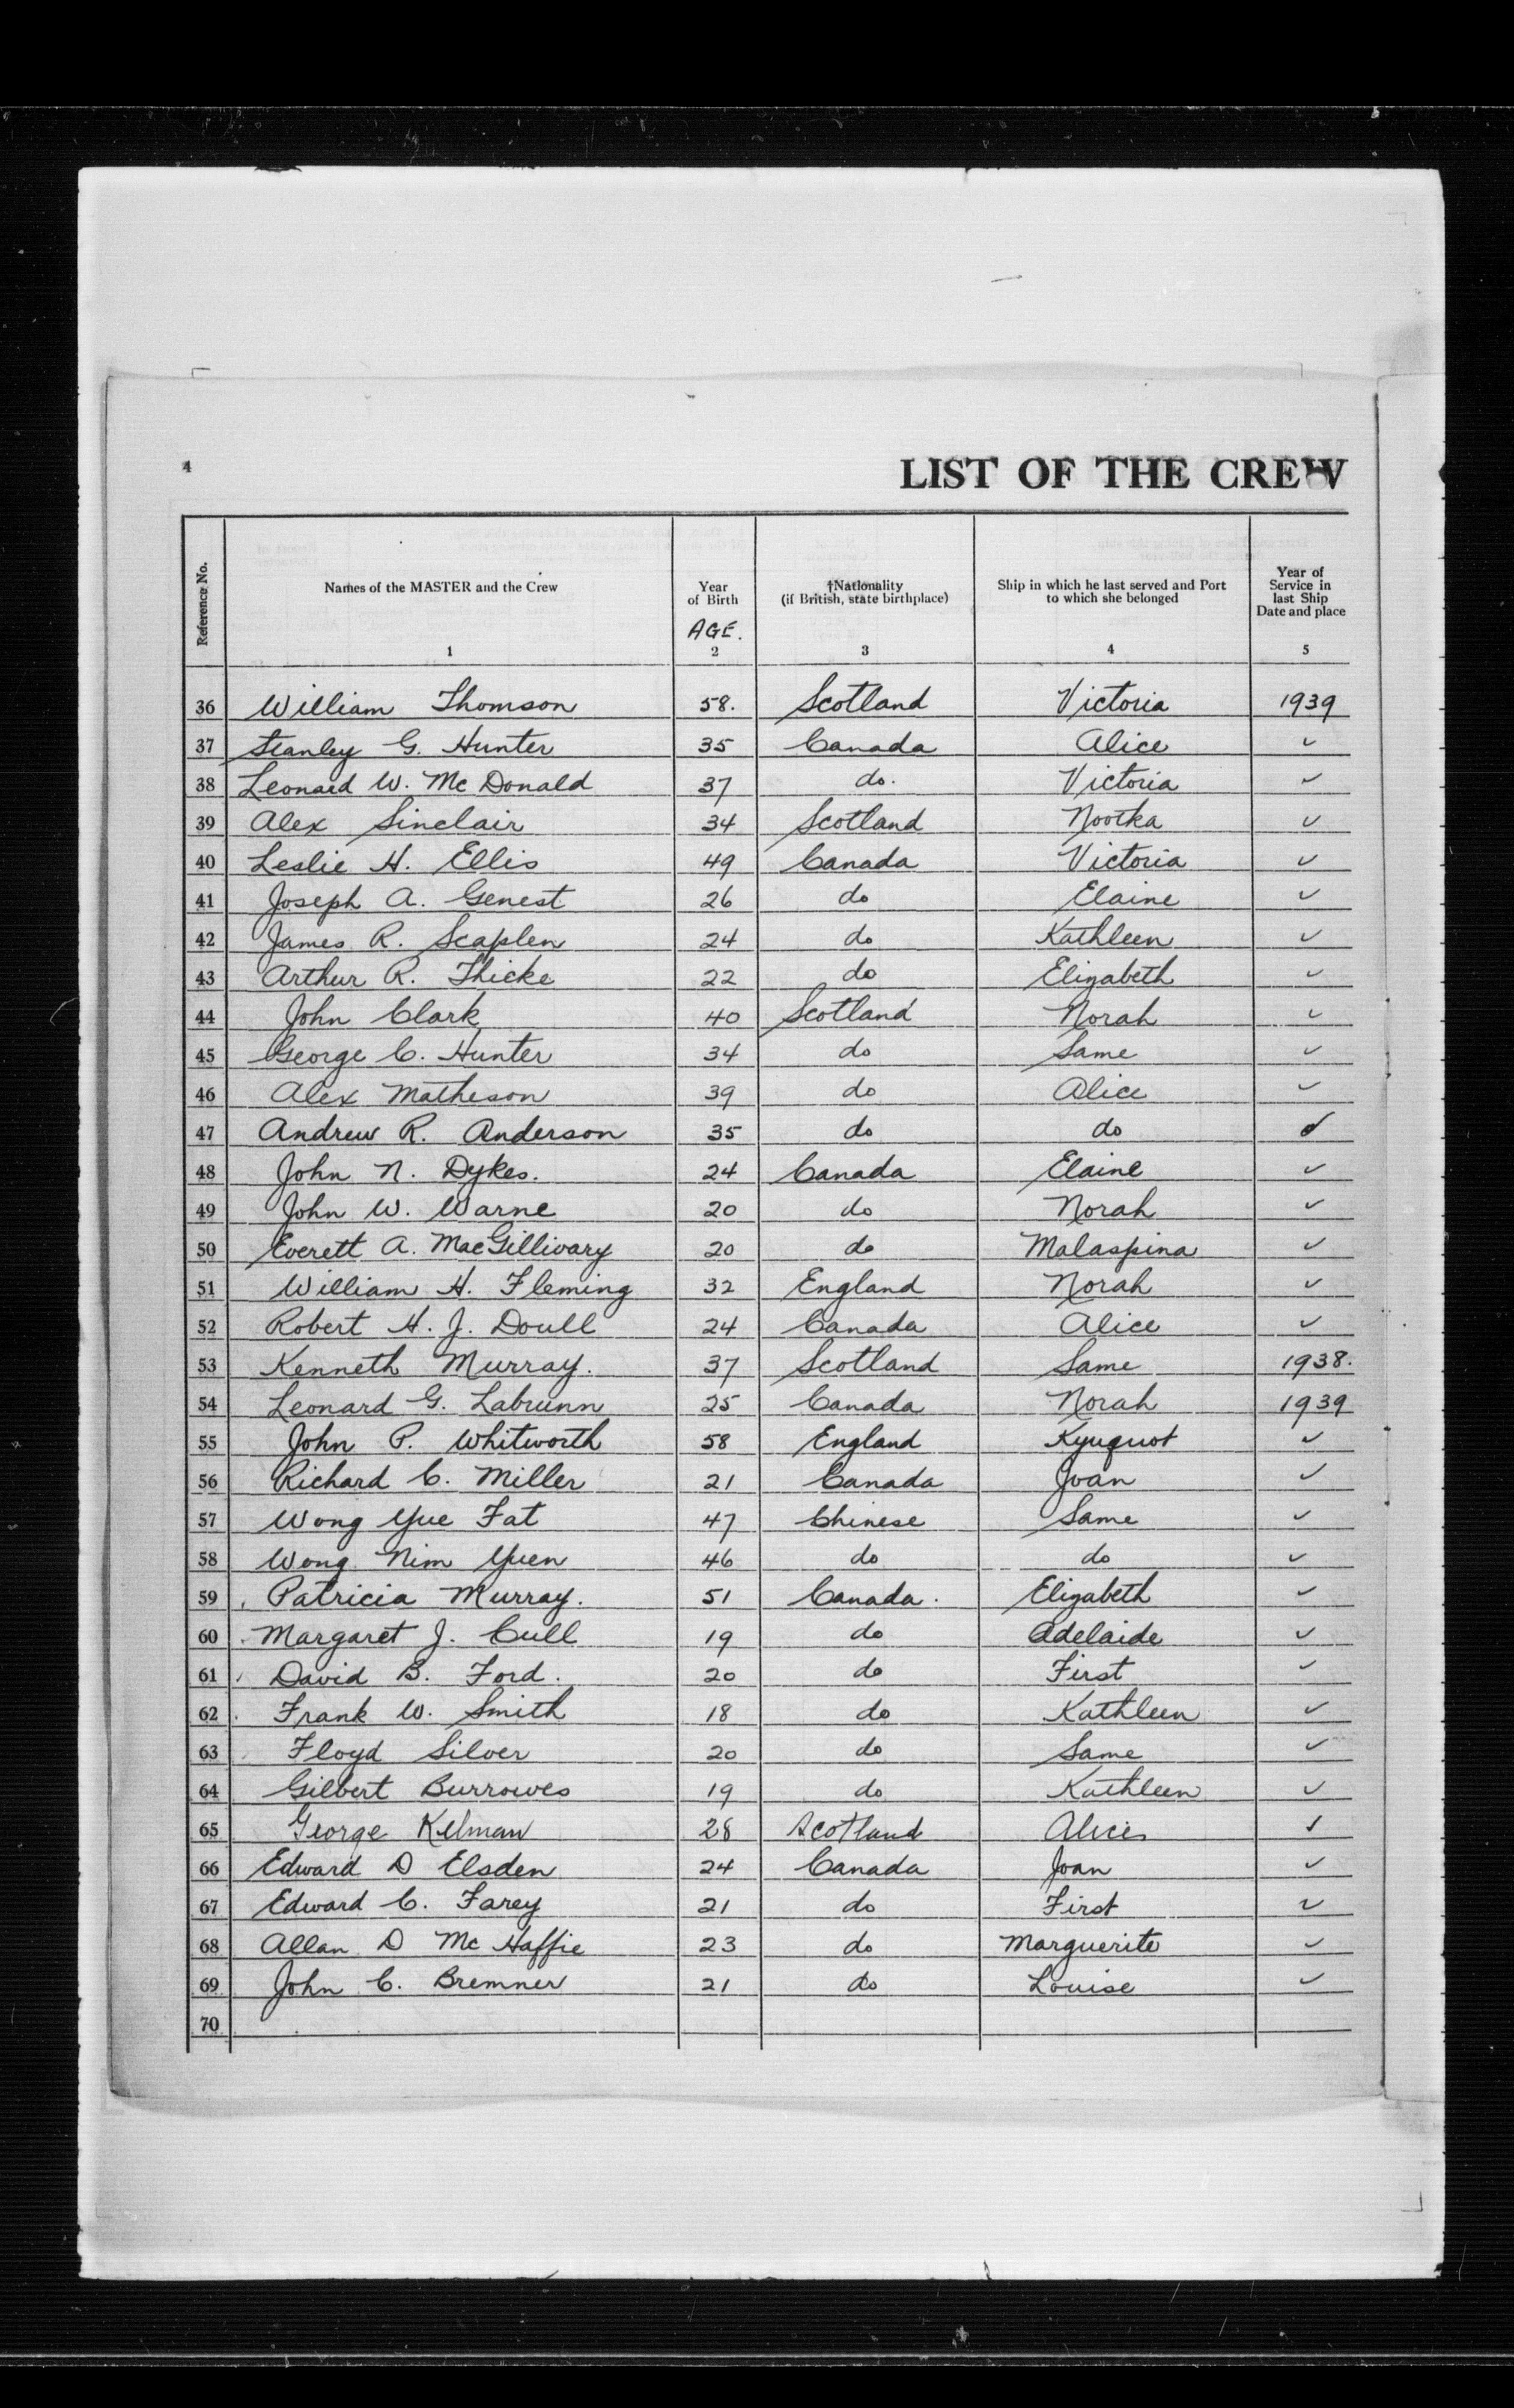 4
LIST OF THE CREW
Reference No.
Names of the MASTER and the Crew
1
Year of Birth
AGE.
2
†Nationality
(if British, state birthplace)
3
Ship in which he last served and Port to which she belonged
4
Year of Service in last Ship Date and place
5
36 William Thomson 58. Scotland Victoria 1939
37 Stanley G. Hunter 35 Canada Alice ✓
38 Leonard W. Mc Donald 37 do. Victoria ✓
39 Alex Sinclair 34 Scotland Nootka ✓
40 Leslie H. Ellis 49 Canada Victoria ✓
41 Joseph A. Genest 26 do Elaine ✓
42 James R. Scaplen 24 do Kathleen ✓
43 Arthur R. Thicke 22 do Elizabeth ✓
44 John Clark 40 Scotland Norah ✓
45 George C. Hunter 34 do Same ✓
46 Alex Matheson 39 do Alice ✓
47 Andrew R. Anderson 35 do do ✓
48 John N. Dykes. 24 Canada Elaine ✓
49 John W. Warne 20 do Norah ✓
50 Everett A. MacGillivary 20 do Malaspina ✓
51 William H. Fleming 32 England Norah ✓
52 Robert H. J. Doull 24 Canada Alice ✓
53 Kenneth Murray. 37 Scotland Same 1938.
54 Leonard G. Labrunn 25 Canada Norah 1939
55 John P. Whitworth 58 England Kyuquot ✓
56 Richard C. Miller 21 Canada Joan ✓
57 Wong Yue Fat 47 Chinese Same ✓
58 Wong Nim Yuen 46 do do ✓
59 Patricia Murray. 51 Canada. Elizabeth ✓
60 Margaret J. Cull 19 do Adelaide ✓
61 David B. Ford. 20 do First ✓
62 Frank W. Smith 18 do Kathleen ✓
63 Floyd Silver 20 do Same ✓
64 Gilbert Burrowes 19 do Kathleen ✓
65 George Kelman 28 Scotland Alice ✓
66 Edward D Elsden 24 Canada Joan ✓
67 Edward C. Farey 21 do First ✓
68 Allan D Mc Haffie 23 do Marguerite ✓
69 John C. Bremner 21 do Louise ✓
70